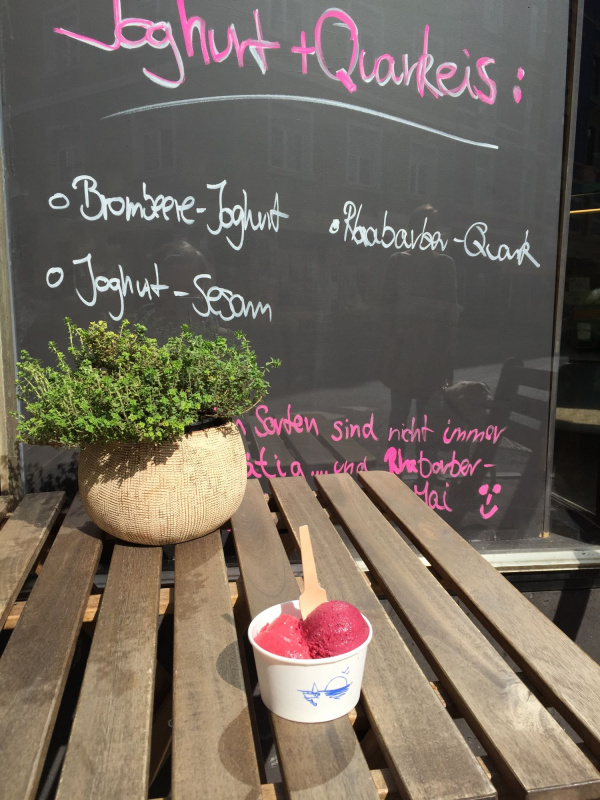 Joghurt + Quarkeis:
o Brombeere-Joghurt
• Rhabarber-Quark
o Joghurt-Sesam
Sorten sind nicht immer
und Rhabarber-
Mai